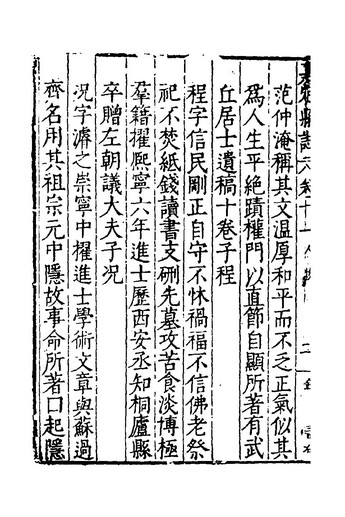 范仲淹稱其文溫厚和平而不乏正氣似其
為人生平絶蹟權門以直節自顯所著有武
丘居士遺稿十卷子程
程字信民剛正自守不怵禍福不信佛老祭
祀不焚紙錢讀書支硎先墓攻苦食淡博極
羣籍擢熙寧六年進士歷西安丞知桐廬縣
卒贈左朝議大夫子况
况字濬之崇寧中擢進士學術文章與蘇過
齊名用其祖宗元中隱故事命所著曰起隱